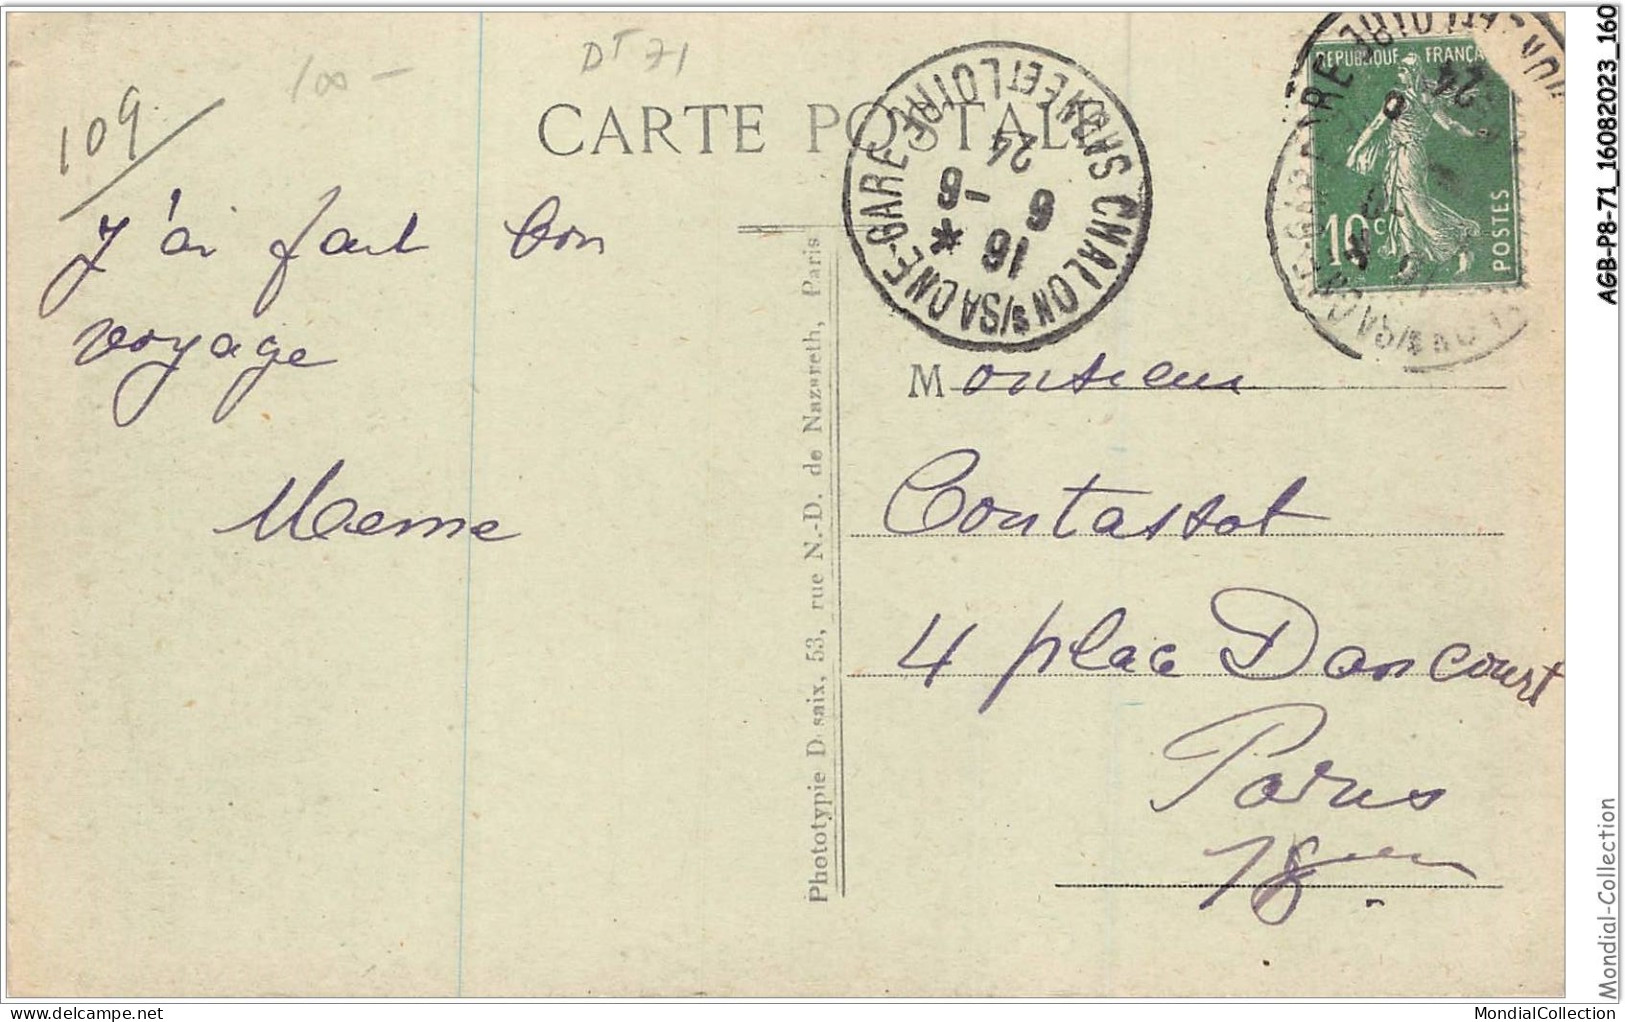 109
100 -
DT 71
CARTE POSTALE
J'ai fait bon
voyage
Meme
Phototypie D saix, 53, rue N.-D. de Nazareth, Paris
CHALON S/SAONE-GARE
SAONE ET LOIRE
16 *
6 -6
24
REPUBLIQUE FRANÇA
10c
POSTES
Monsieur
Contassot
4 place Dancourt
Paris
18eme
AGB-P8-71_16082023_160
Mondial-Collection
delcampe.net
MondialCollection